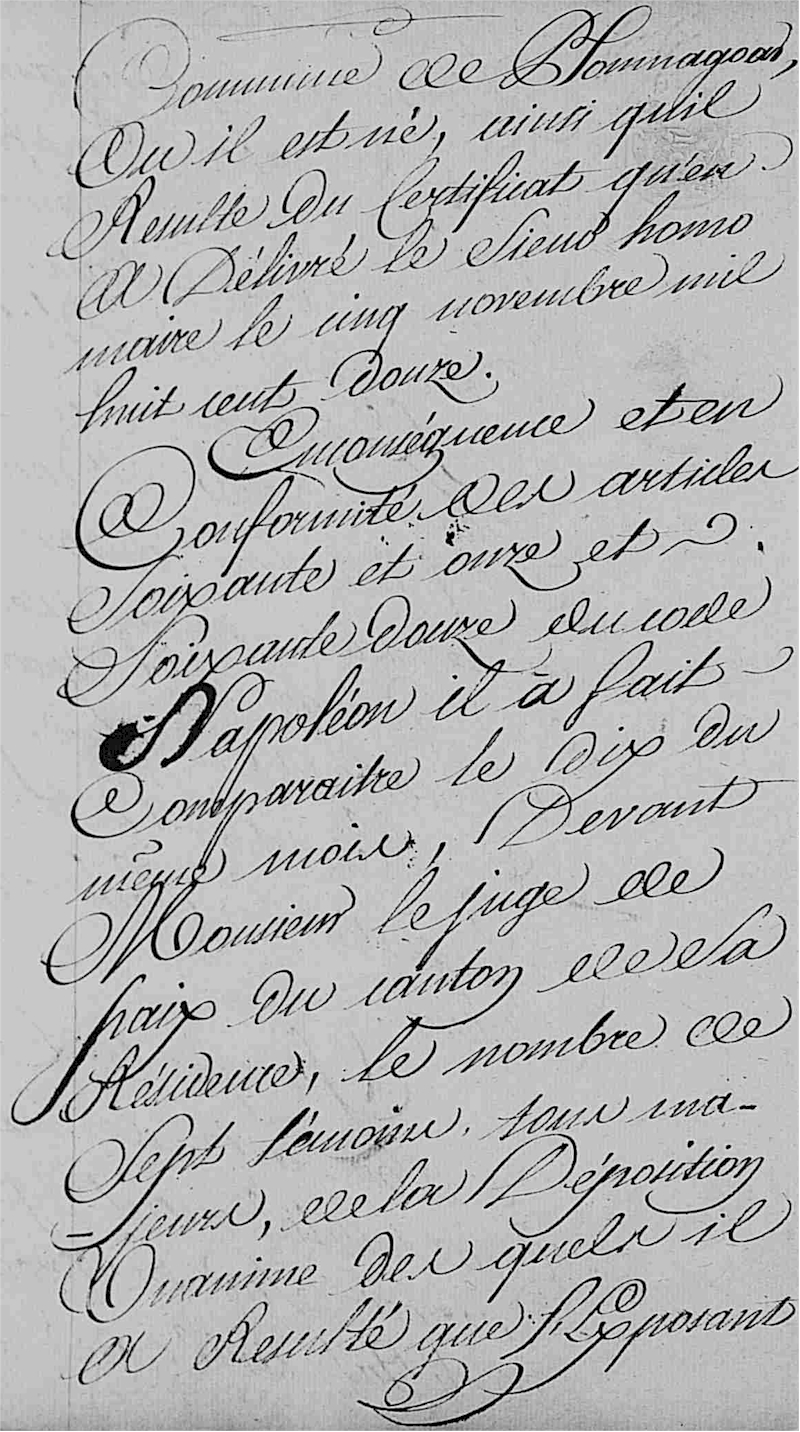 Commune de Ploumagoar,
Ou il est né, ainsi quil
Resulte Du Certificat qu'en
A Délivré le Sieur homo
maire le cinq novembre mil
huit cent douze.
Enconséquence et en
Conformité des articles
Soixante et onze et
Soixante Douze du code
Napoléon il a fait
Comparaitre le dix du
même mois, Devant
Monsieur le juge de
paix Du canton de sa
Résidence, le nombre de
Sept témoins, tous ma-
-jeurs, de la Déposition
Unanime Des quels il
A Resulté que l'Exposant